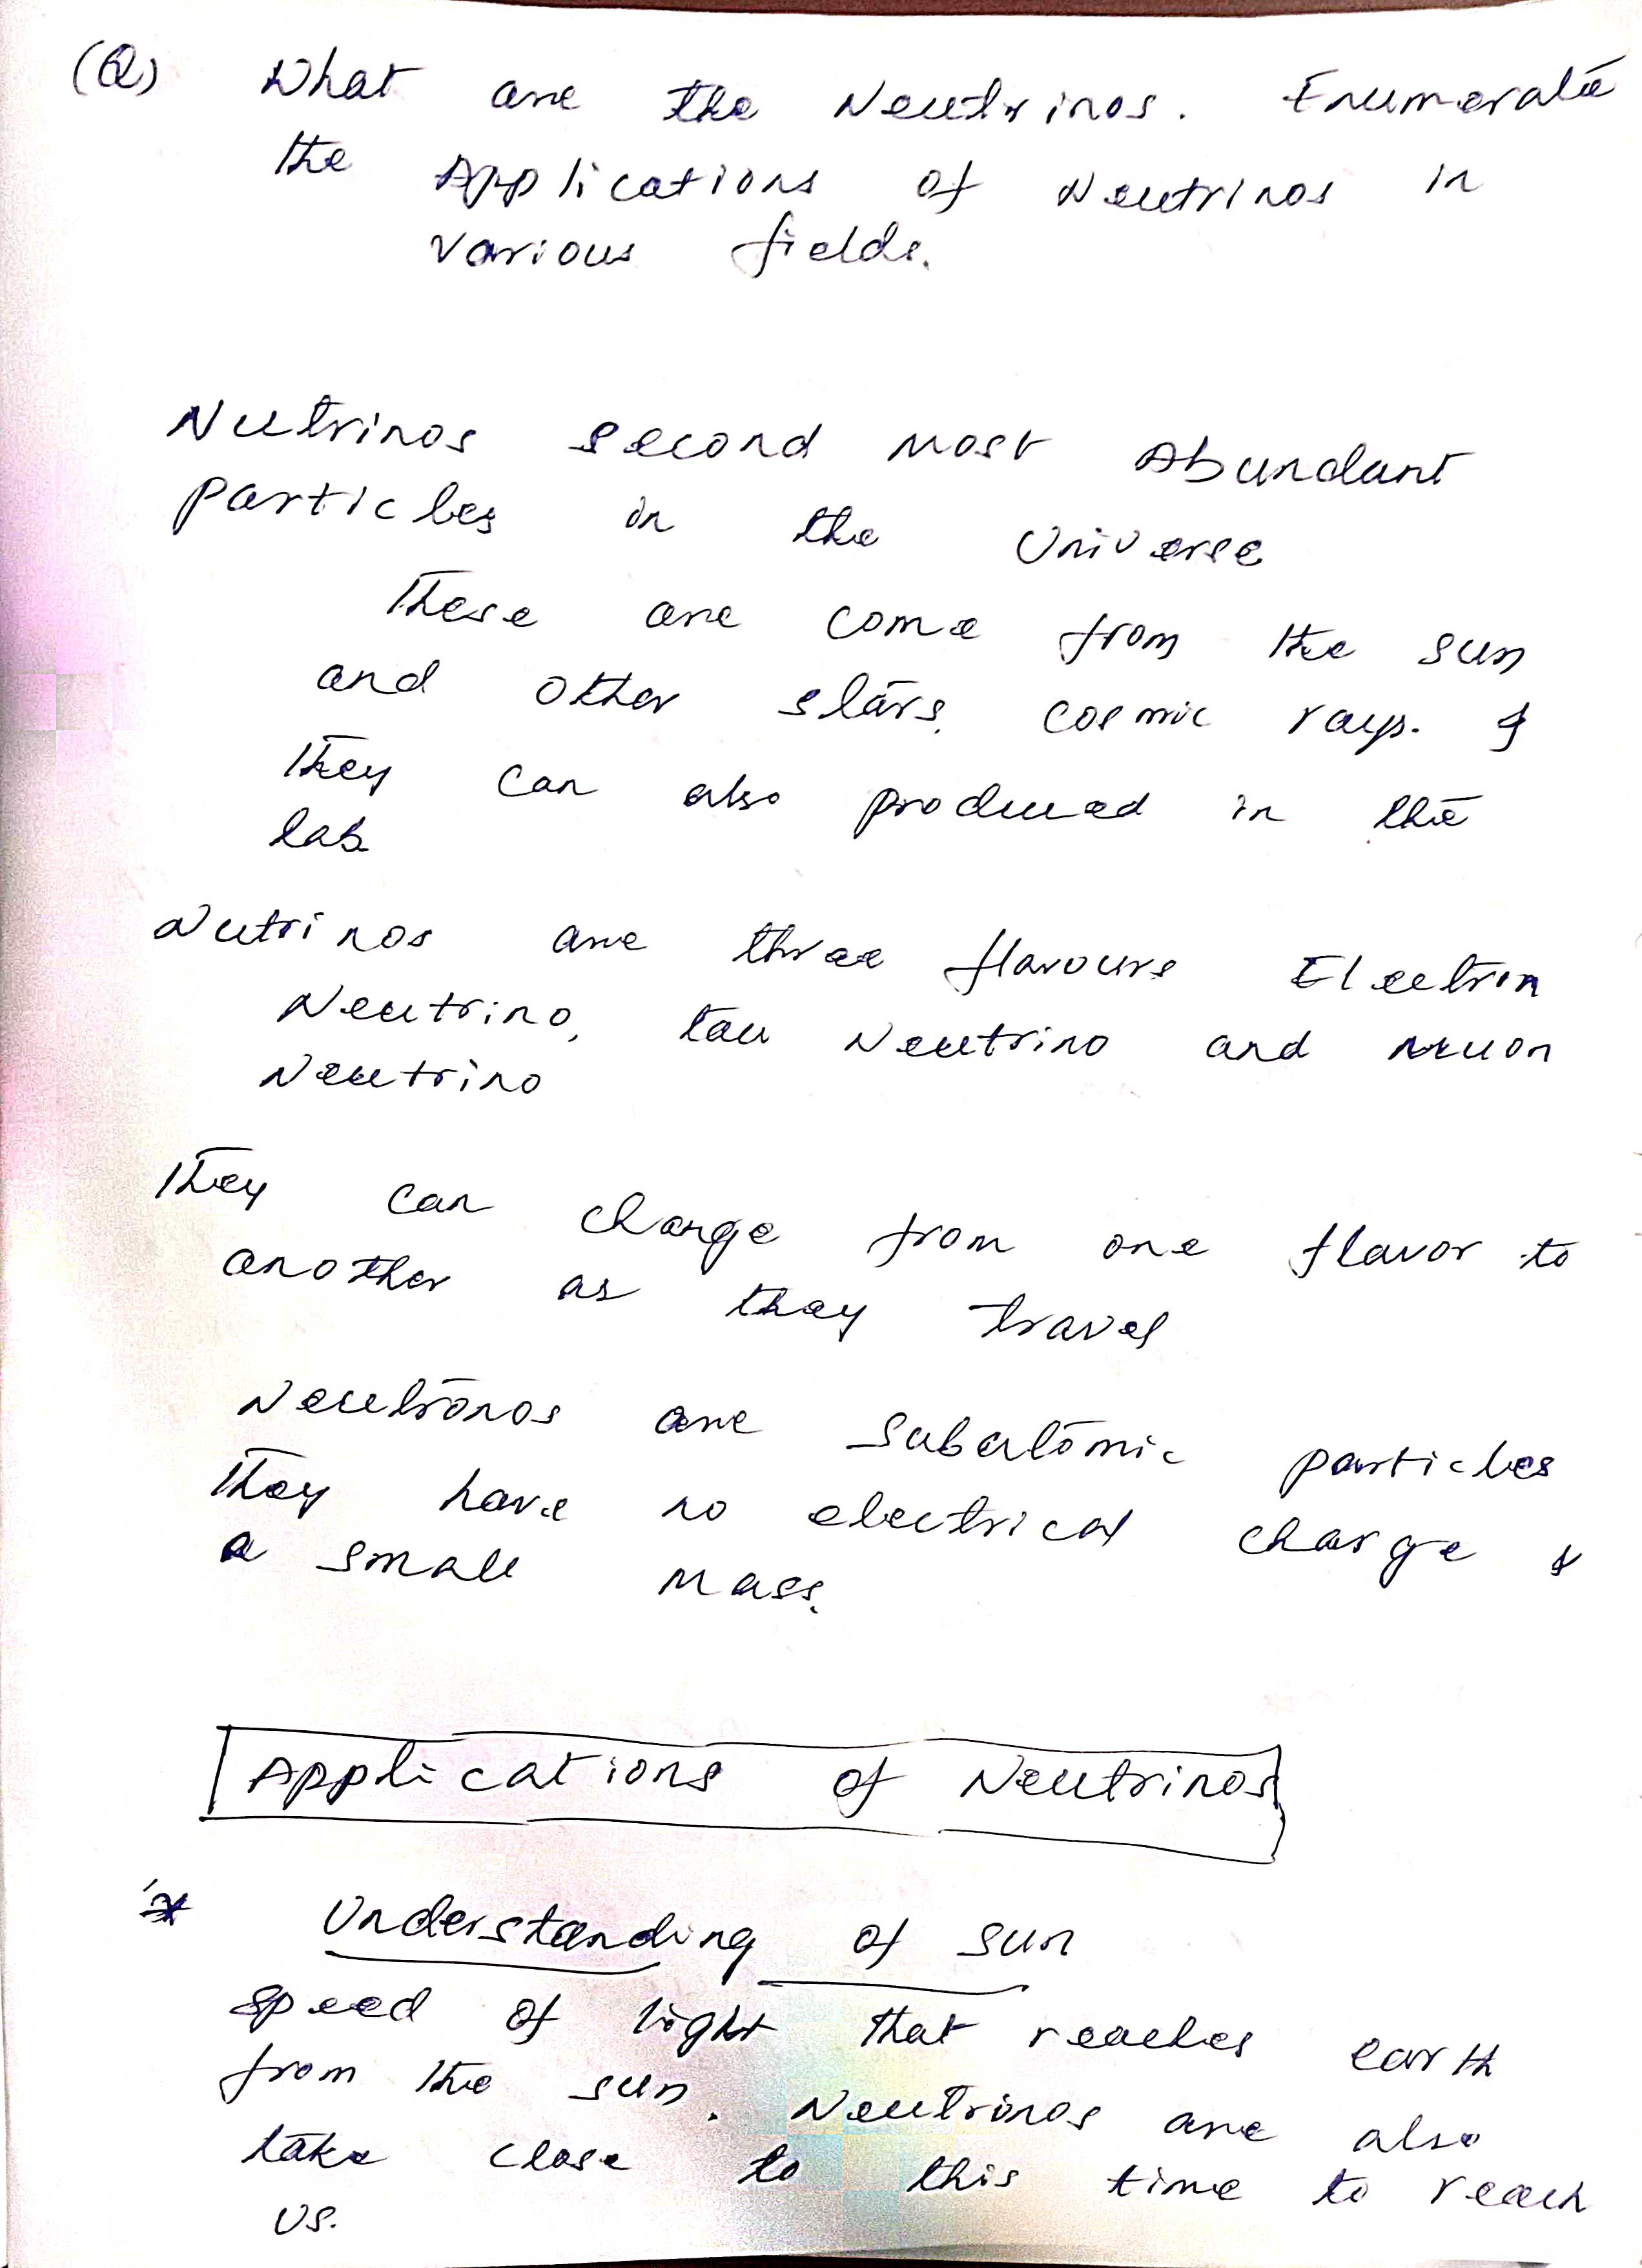 (Q) What are the Neutrinos. Enumerate
the Applications of Neutrinos in
various fields.
Neutrinos second most Abundant
particles in the Universe
These are come from the sun
and other stars, cosmic rays. &
They can also produced in the
lab
Nutrinos are three flavours Electron
Neutrino, tau Neutrino and muon
Neutrino
They can change from one flavor to
another as they travel
Neutrinos are subatomic particles
They have no electrical charge &
a small mass.
Applications of Neutrinos
* Understanding of sun
speed of light that reaches earth
from the sun. Neutrinos are also
take close to this time to reach
us.